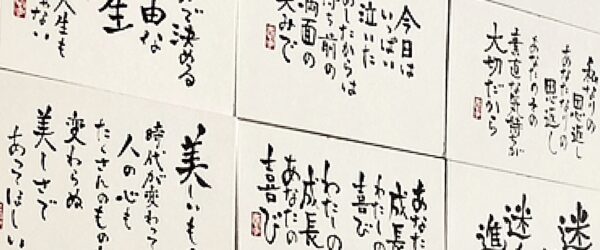 で決める
由な
生
人生も
ない
今日は
いっぱい
泣いた
あしたからは
持ち前の
満面の
笑みで
私なりの
恩返し
あなたなりの
恩返し
あなたのその
素直な気持ちが
大切だから
美しいも
時代が変わって
人の心も
たくさんのもの
変わらぬ
美しさで
あってほしい
あなた
成長
わたしの
喜び
わたしの
成長
あなたの
喜び
迷
迷
進